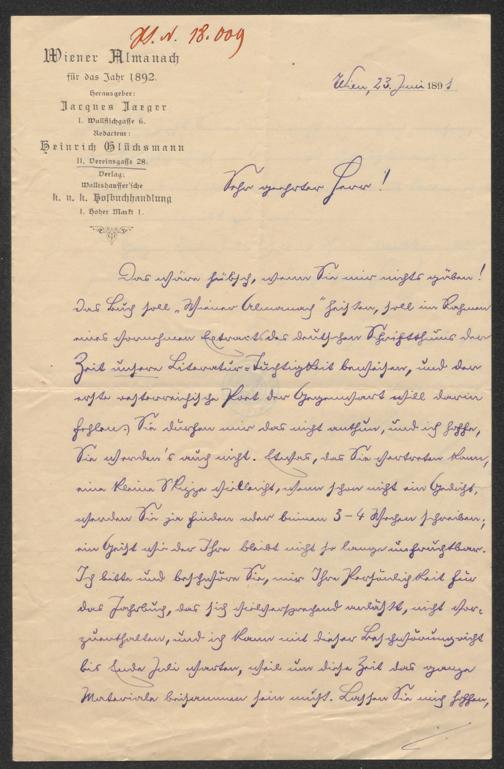 H. N. 18.009
Wiener Almanach
für das Jahr 1892.
Herausgeber:
Jacques Jaeger
I. Wallfischgasse 6.
Redacteur:
Heinrich Glücksmann
II. Vereinsgasse 28.
Verlag:
Wallishausser'sche
k. u. k. Hofbuchhandlung
I. Hoher Markt 1.
Wien, 23. Juni 1891
Sehr geehrter Herr!
Das wäre hübsch, wenn Sie mir nichts gäben!
Das Buch soll „Wiener Almanach" heißen, soll im Rahmen
eines vornehmen Extracts des deutschen Schriftthums der
Zeit unsere Literatur-Tüchtigkeit beweisen, und der
erste oesterreichische Poet der Gegenwart will darin
fehlen? Sie dürfen mir das nicht anthun, und ich hoffe,
Sie werden's auch nicht. Etwas, das Sie vertreten kann,
eine kleine Skizze vielleicht, wenn schon nicht ein Gedicht,
werden Sie ja finden oder binnen 3-4 Wochen schreiben;
ein Geist wie der Ihre bleibt nicht so lange unfruchtbar.
Ich bitte und beschwöre Sie, mir Ihre Persönlichkeit für
das Jahrbuch, das sich vielversprechend anläßt, nicht vor-
zuenthalten, und ich kann mit dieser Beschwörung nicht
bis Ende Juli warten, weil um diese Zeit das ganze
Materiale beisammen sein muß. Lassen Sie mich hoffen,